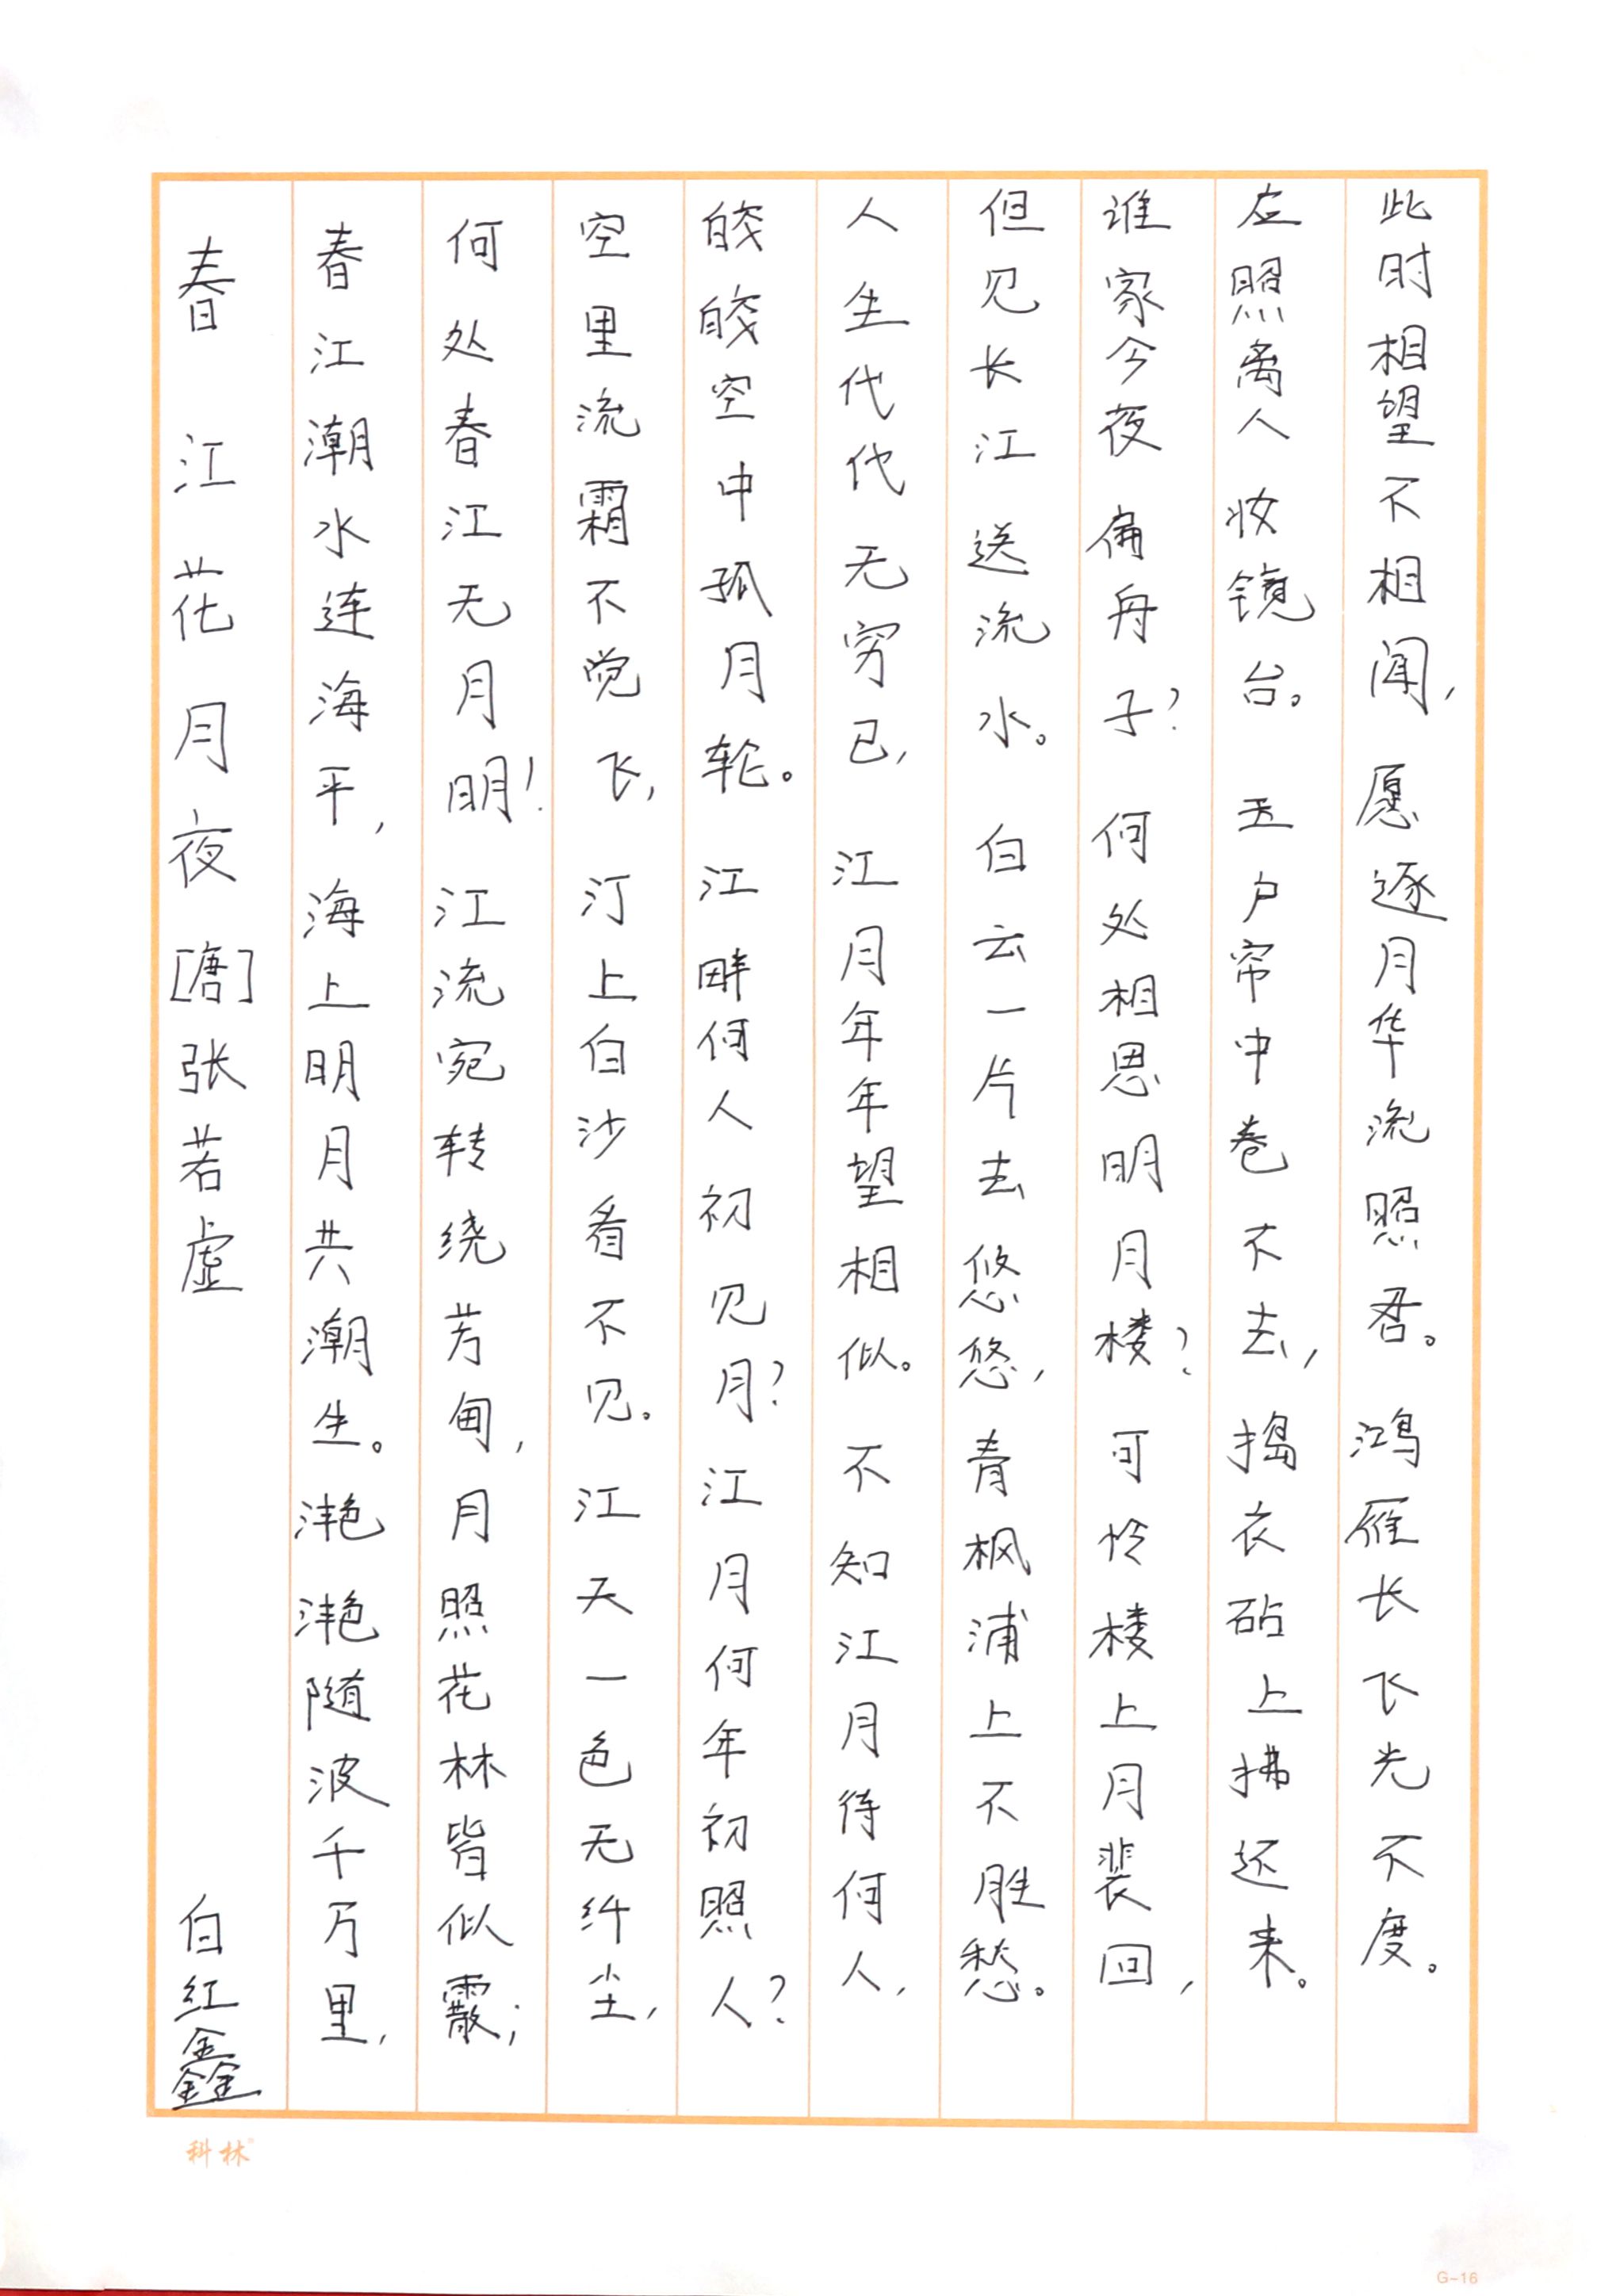 春江花月夜[唐]张若虚 白红鑫
春江潮水连海平,海上明月共潮生。滟滟随波千万里,
何处春江无月明!江流宛转绕芳甸,月照花林皆似霰;
空里流霜不觉飞,汀上白沙看不见。江天一色无纤尘,
皎皎空中孤月轮。江畔何人初见月?江月何年初照人?
人生代代无穷已,江月年年望相似。不知江月待何人,
但见长江送流水。白云一片去悠悠,青枫浦上不胜愁。
谁家今夜扁舟子?何处相思明月楼?可怜楼上月裴回,
应照离人妆镜台。玉户帘中卷不去,捣衣砧上拂还来。
此时相望不相闻,愿逐月华流照君。鸿雁长飞光不度。
科林
G-16